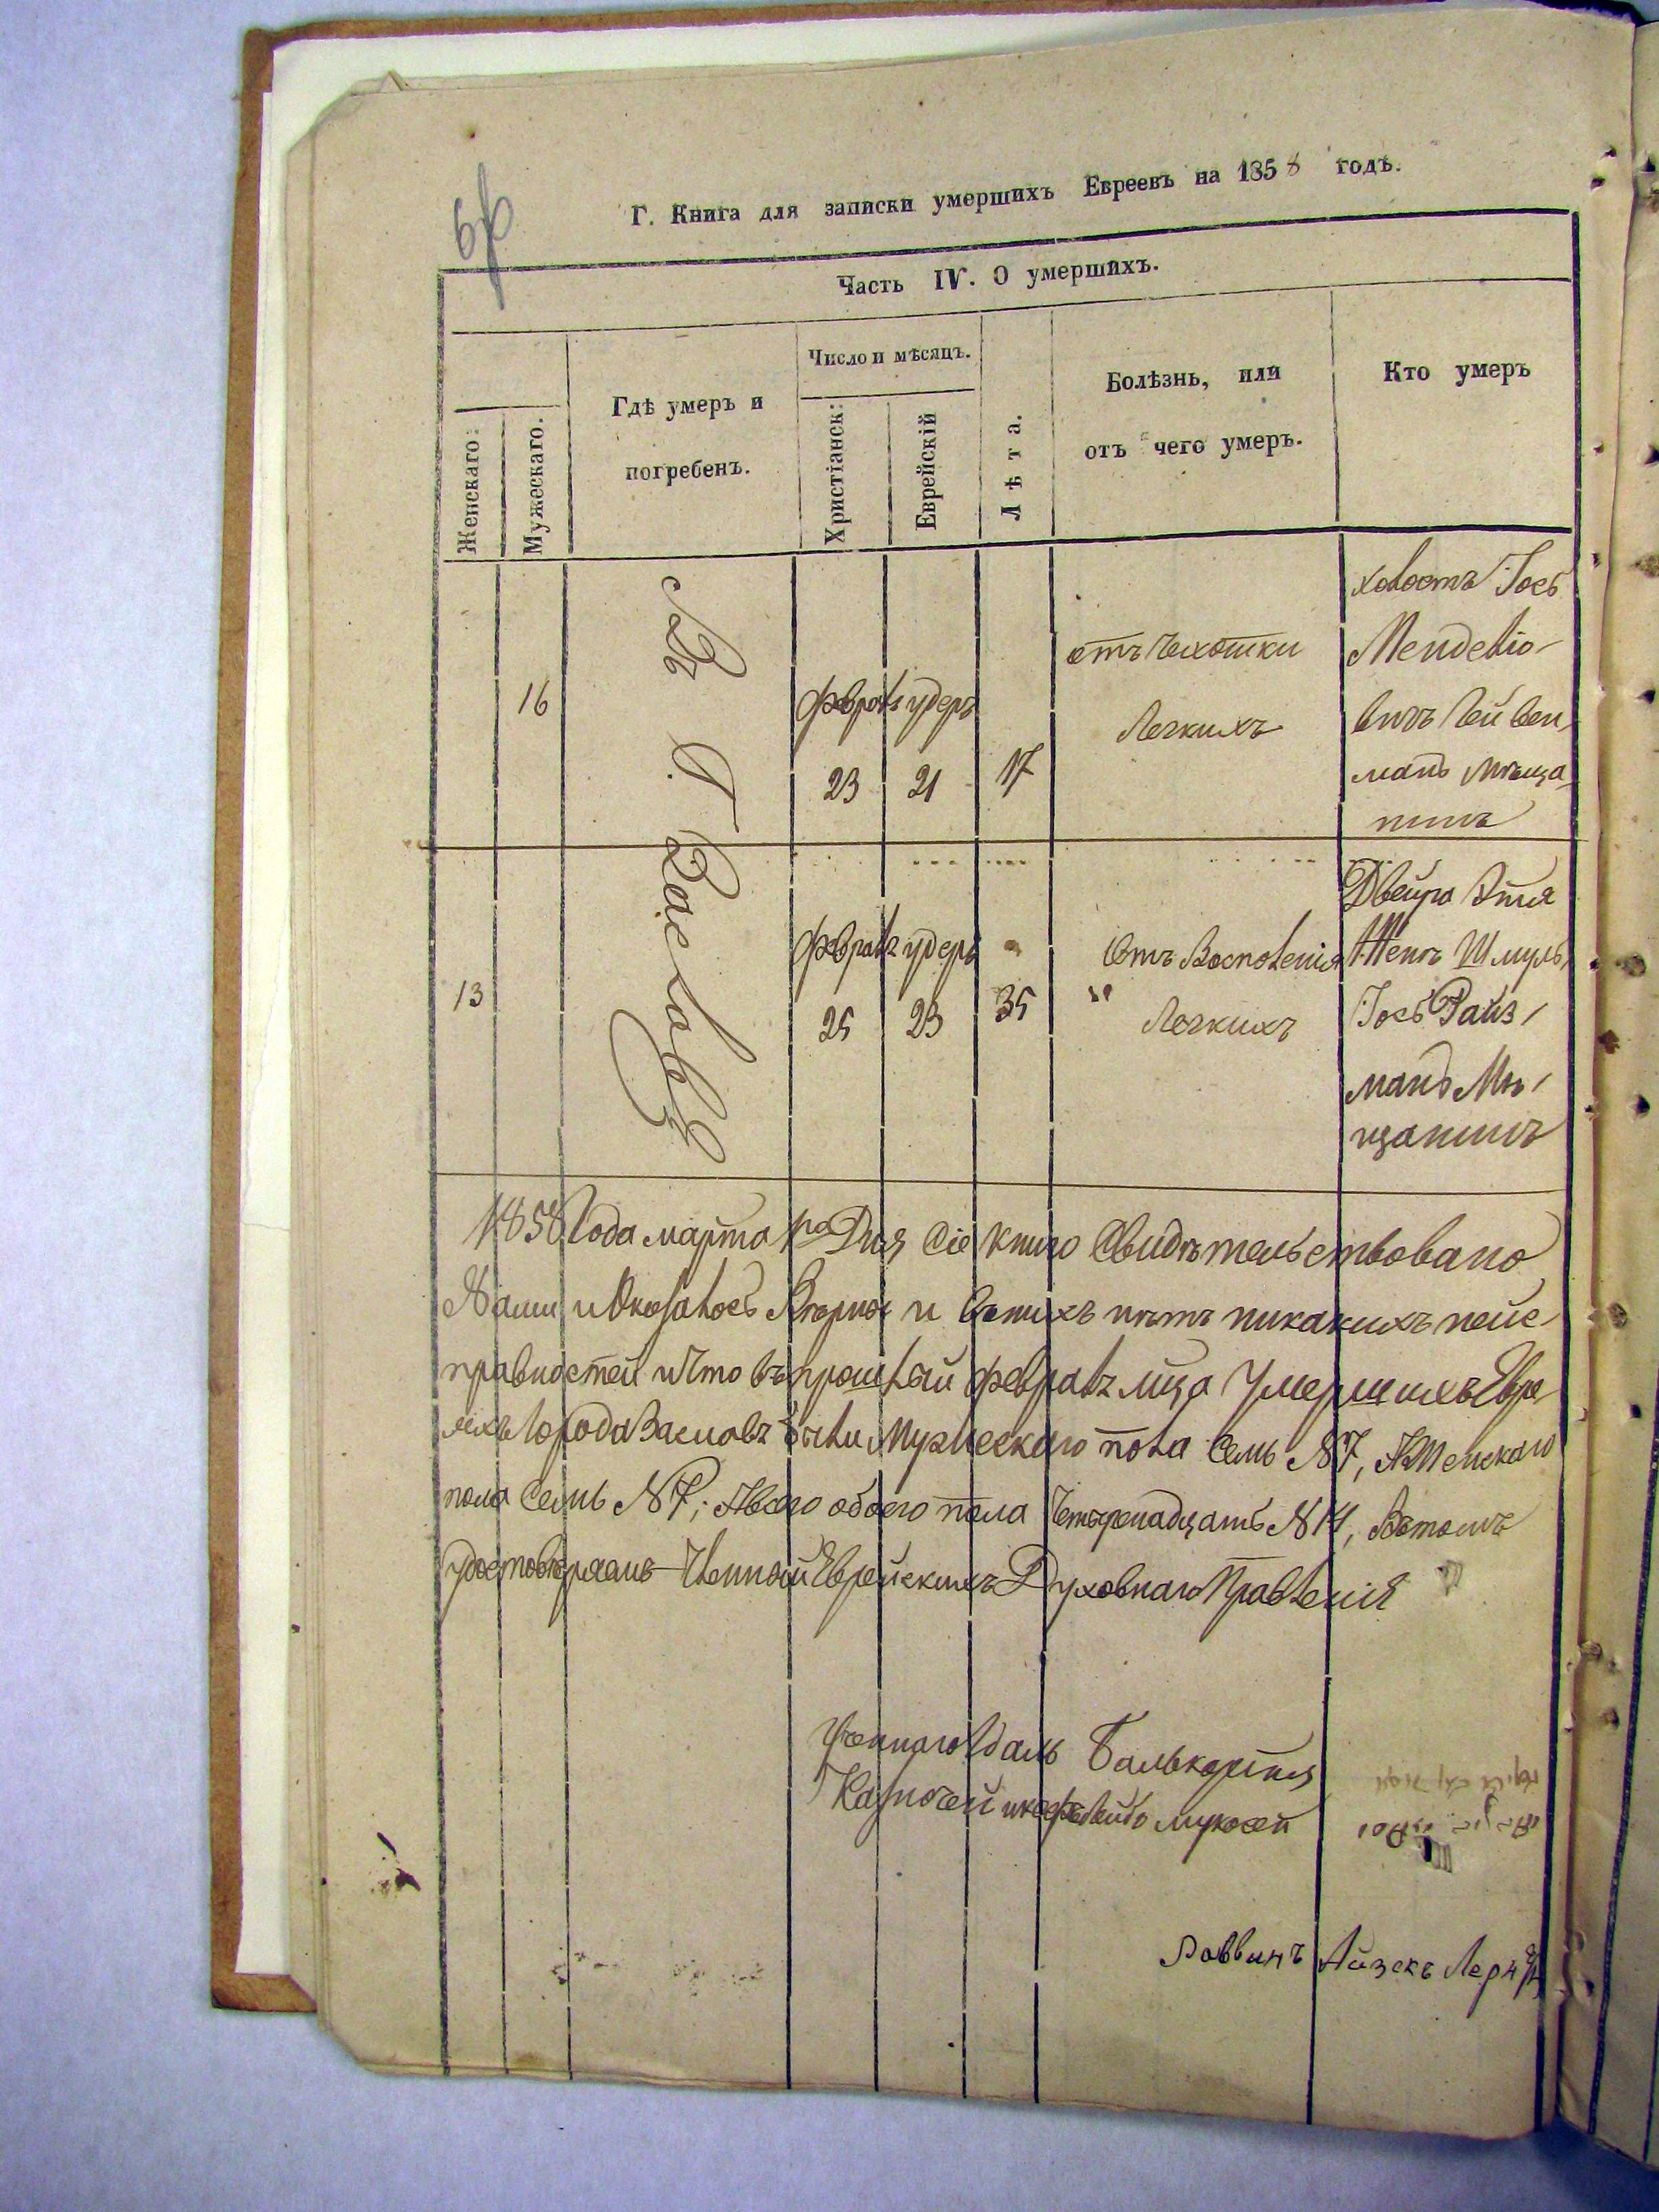 66
Г. Книга для записки умершихъ Евреевъ на 1858 годъ.
Часть IV. О умершихъ.
Женскаго:
Мужескаго.
Гдѣ умеръ и
погребенъ.
Число и мѣсяцъ.
Христіанск:
Еврейскій
Лѣта.
Болѣзнь, или
отъ чего умеръ.
Кто умеръ
16
Въ Г. Заславѣ
Февраль удеръ
23 21 17
отъ чехотки
Легкихъ
холостъ Іось
Менделіо-
вичъ
манъ мѣща
нинъ
13
Февраль удеръ
25 23 35
Отъ Восполенія
Легкихъ
Двейра Этля
Жена Шмуль
Іось Райз
манъ Мѣ
щанинъ
1858 Года марта 1го Дня Сіе книга Свидѣтельствовано
Нами и Оказалось Вѣрно и въ нихъ нѣтъ никакихъ неис-
правностей и что въ прошлый февраль мца Умершихъ Евре
яхъ Города Заславъ были Мужескаго пола Семь №7, А Женскаго
пола Семь №7; А всего обоего пола Четырнадцать №14, Въ томъ
удостовѣряемъ Члены Еврейскихъ Духовнаго Правленія
Ученного
Казночей Лейбъ
Раввинъ Айзекъ Лернер